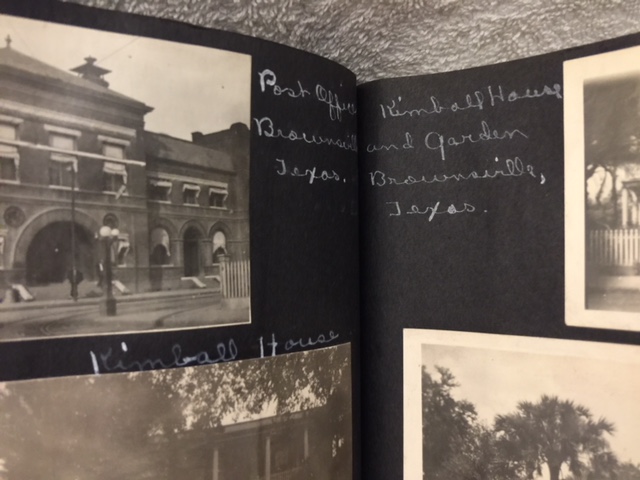 Post Office
Brownsville
Texas.
Kimball House
Kimball House
and Garden
Brownsville,
Texas.